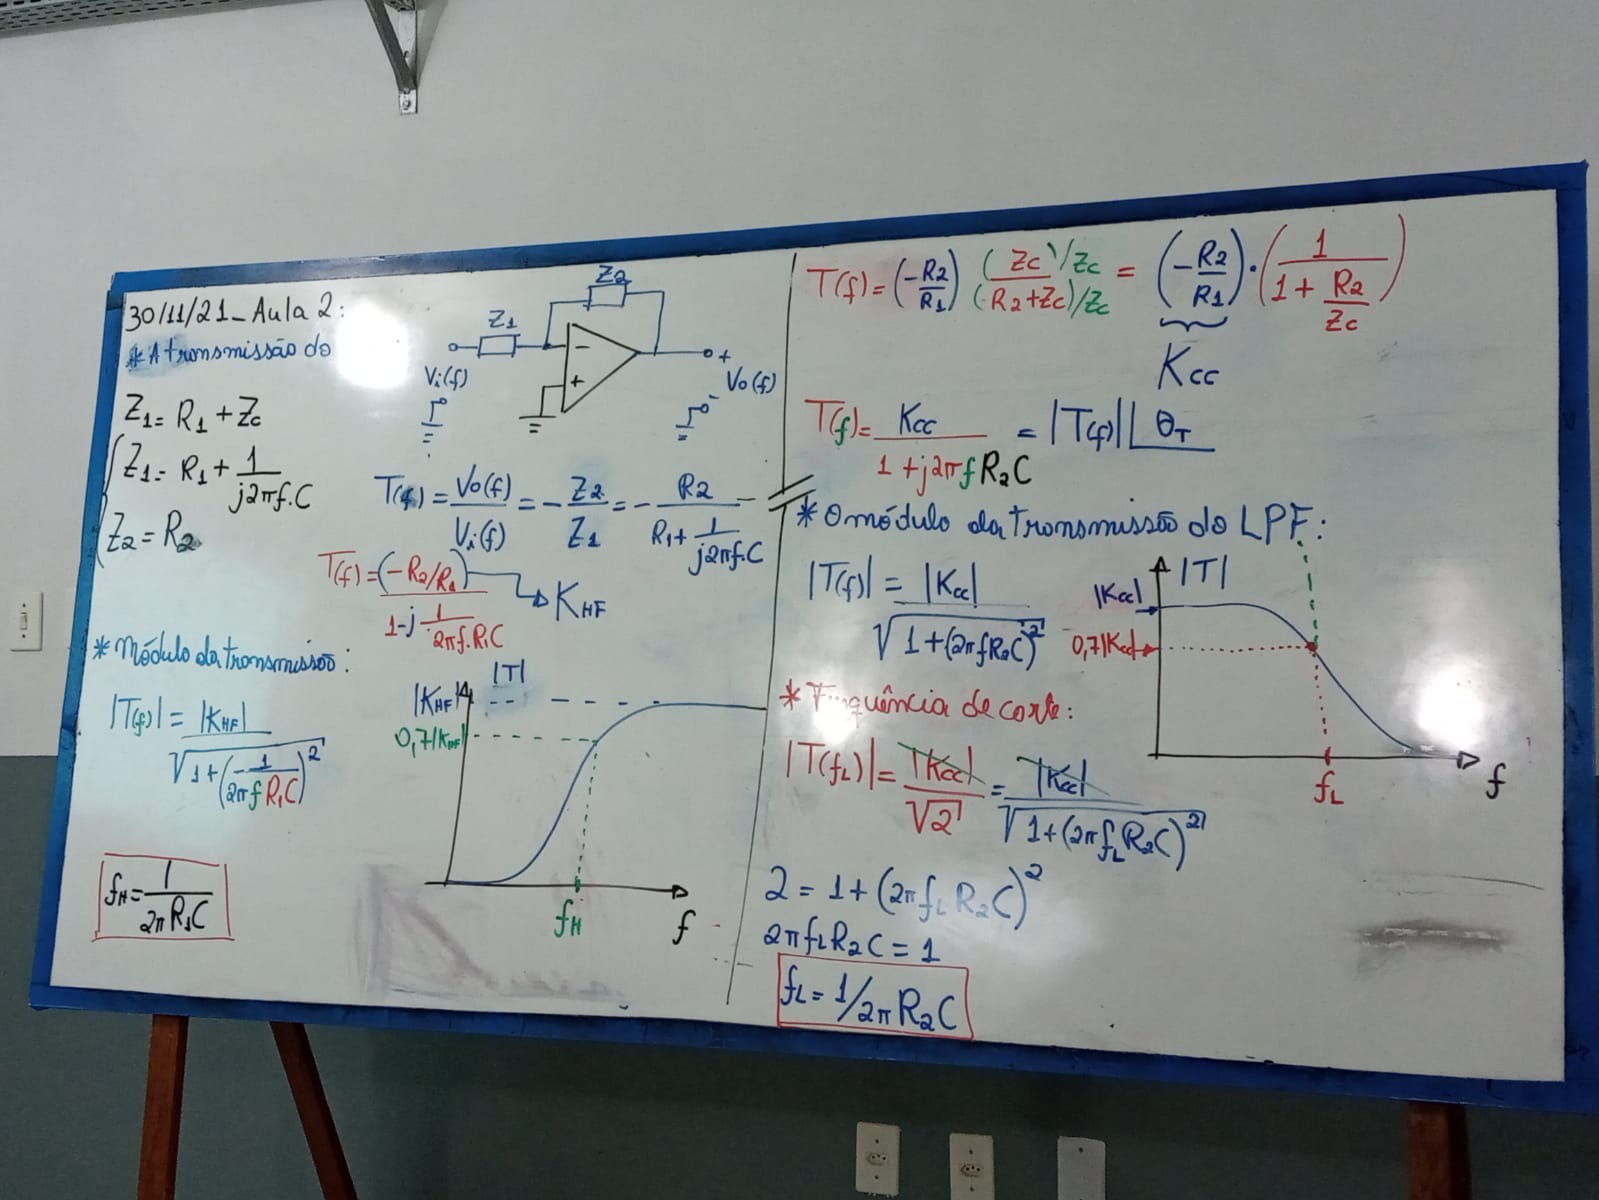 30/11/21_ Aula 2:
* A transmissão do
Z1 = R1 + Zc
Z1 = R1 + 1/(j2πf.C)
Z2 = R2
Z2
Z1
−
+
Vi(f)
+
Vo(f)
−
T(f) = Vo(f)/Vi(f) = − Z2/Z1 = − R2/(R1 + 1/(j2πf.C))
T(f) = (−R2/R1)/(1 − j 1/(2πf.R1C)) → KHF
* Módulo da transmissão:
|T(f)| = |KHF|/√(1 + (−1/(2πfR1C))²)
fH = 1/(2πR1C)
|T|
|KHF|
0,7|KHF|
fH
f
T(f) = (−R2/R1) (Zc)/Zc/(R2+Zc)/Zc = (−R2/R1) . (1/(1 + R2/Zc))
Kcc
T(f) = Kcc/(1 + j2πfR2C) = |T(f)| ∠θT
* O módulo da transmissão do LPF:
|T(f)| = |Kcc|/√(1 + (2πfR2C)²)
|T|
|Kcc|
0,7|Kcc|
fL
f
* Frequência de corte:
|T(fL)| = |Kcc|/√2 = |Kcc|/√(1 + (2πfLR2C)²)
2 = 1 + (2πfLR2C)²
2πfLR2C = 1
fL = 1/2πR2C